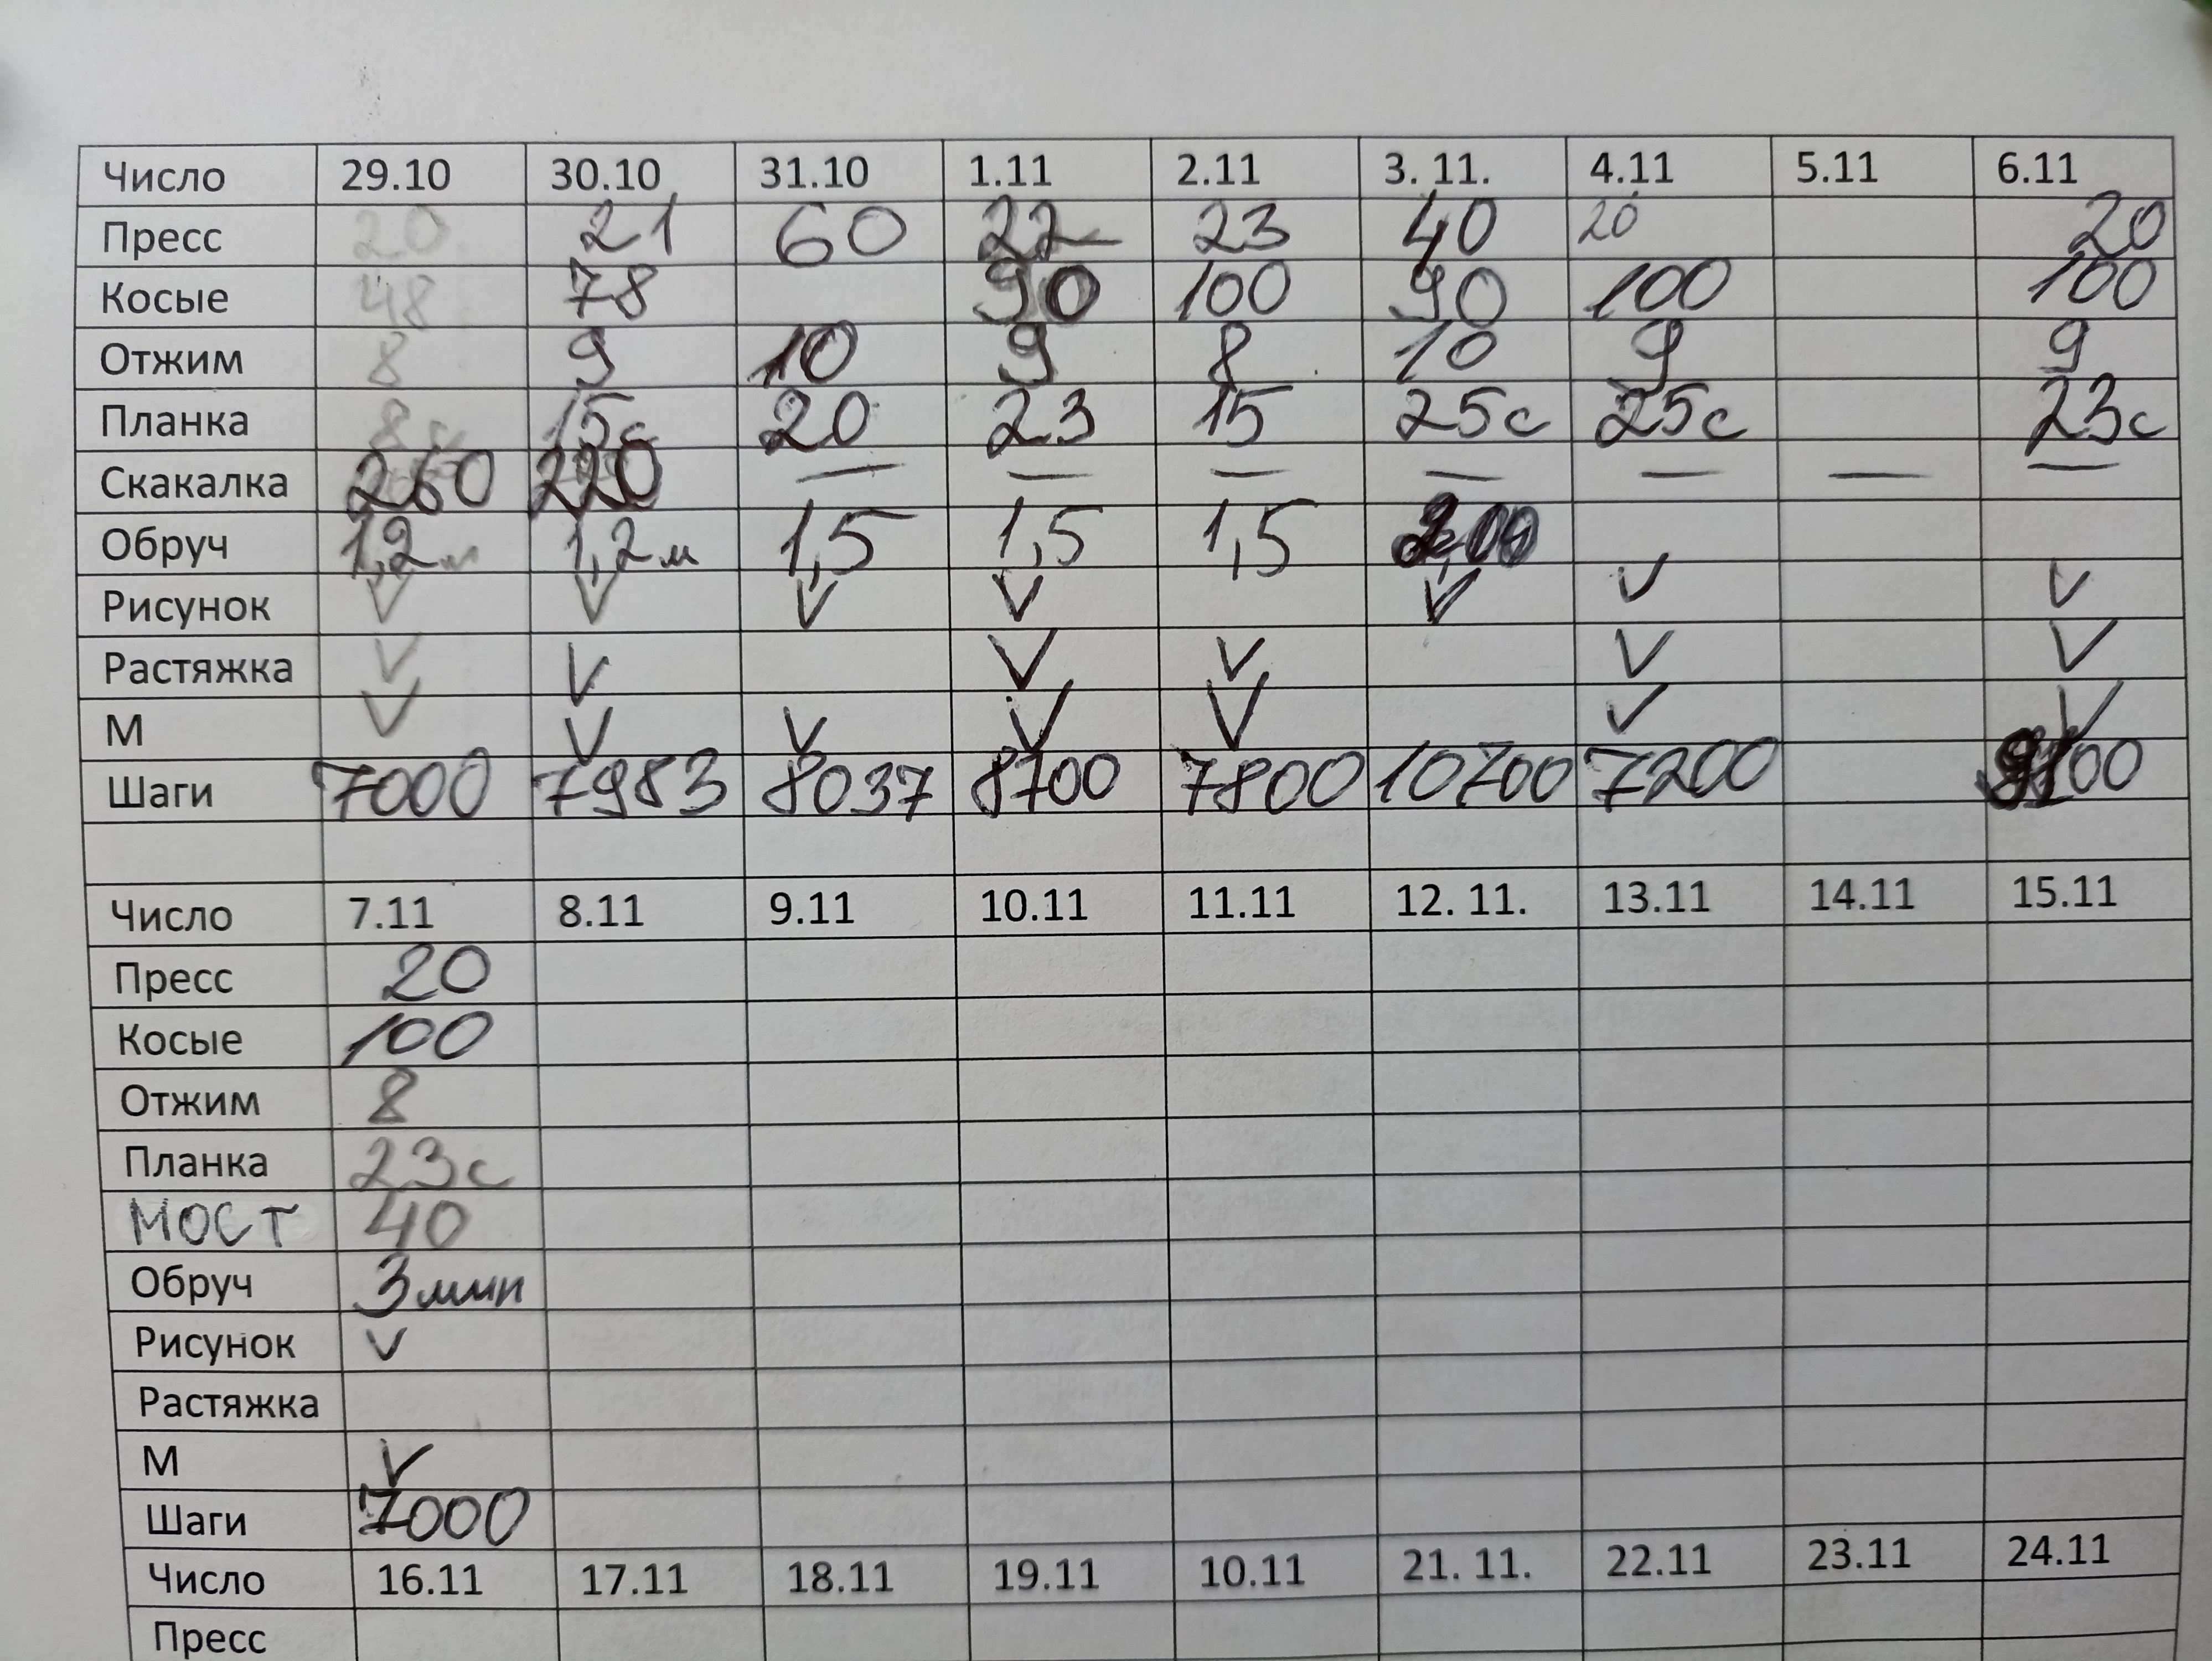 Число 29.10 30.10 31.10 1.11 2.11 3. 11. 4.11 5.11 6.11
Пресс 20 21 60 22 23 40 20 20
Косые 48 78 90 100 90 100 100
Отжим 8 9 10 9 8 10 9 9
Планка 8с 15с 20 23 15 25с 25с 23с
Скакалка 260 220 — — — — — — —
Обруч 1,2м 1,2м 1,5 1,5 1,5
Рисунок V V V V V V V
Растяжка V V V V V V
М V V V V V V V
Шаги 7000 7983 8037 8700 7800 10700 7200 9100
Число 7.11 8.11 9.11 10.11 11.11 12. 11. 13.11 14.11 15.11
Пресс 20
Косые 100
Отжим 8
Планка 23с
МОСТ 40
Обруч 3мин
Рисунок V
Растяжка
М V
Шаги 7000
Число 16.11 17.11 18.11 19.11 10.11 21. 11. 22.11 23.11 24.11
Пресс